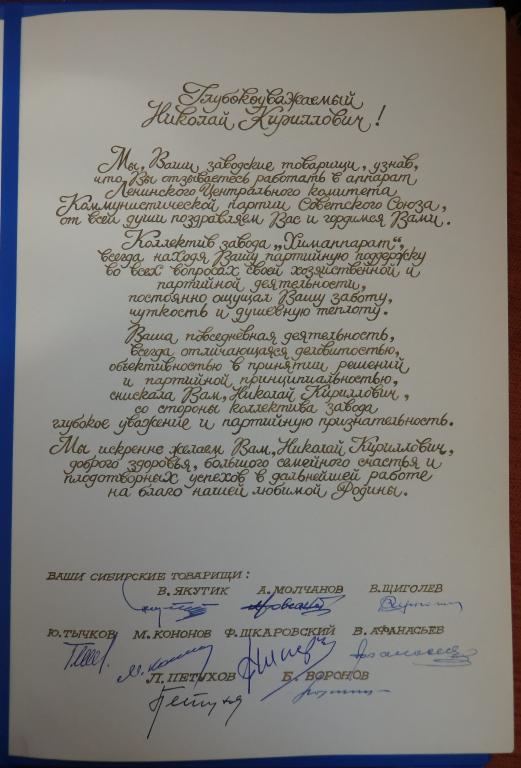 Глубокоуважаемый
Николай Кириллович!
Мы, Ваши заводские товарищи, узнав,
что Вы отзываетесь работать в аппарат
Ленинского Центрального комитета
Коммунистической партии Советского Союза,
от всей души поздравляем Вас и гордимся Вами.
Коллектив завода „Химаппарат“,
всегда находя Вашу партийную поддержку
во всех вопросах своей хозяйственной и
партийной деятельности,
постоянно ощущал Вашу заботу,
чуткость и душевную теплоту.
Ваша повседневная деятельность,
всегда отличающаяся деловитостью,
объективностью в принятии решений
и партийной принципиальностью,
снискала Вам, Николай Кириллович,
со стороны коллектива завода
глубокое уважение и партийную признательность.
Мы искренне желаем Вам, Николай Кириллович,
доброго здоровья, большого семейного счастья и
плодотворных успехов в дальнейшей работе
на благо нашей любимой Родины.
ВАШИ СИБИРСКИЕ ТОВАРИЩИ:
В. ЯКУТИК А. МОЛЧАНОВ В. ЩИГОЛЕВ
Ю. ТЫЧКОВ М. КОНОНОВ Ф. ШКАРОВСКИЙ В. АФАНАСЬЕВ
Л. ПЕТУХОВ Б. ВОРОНОВ